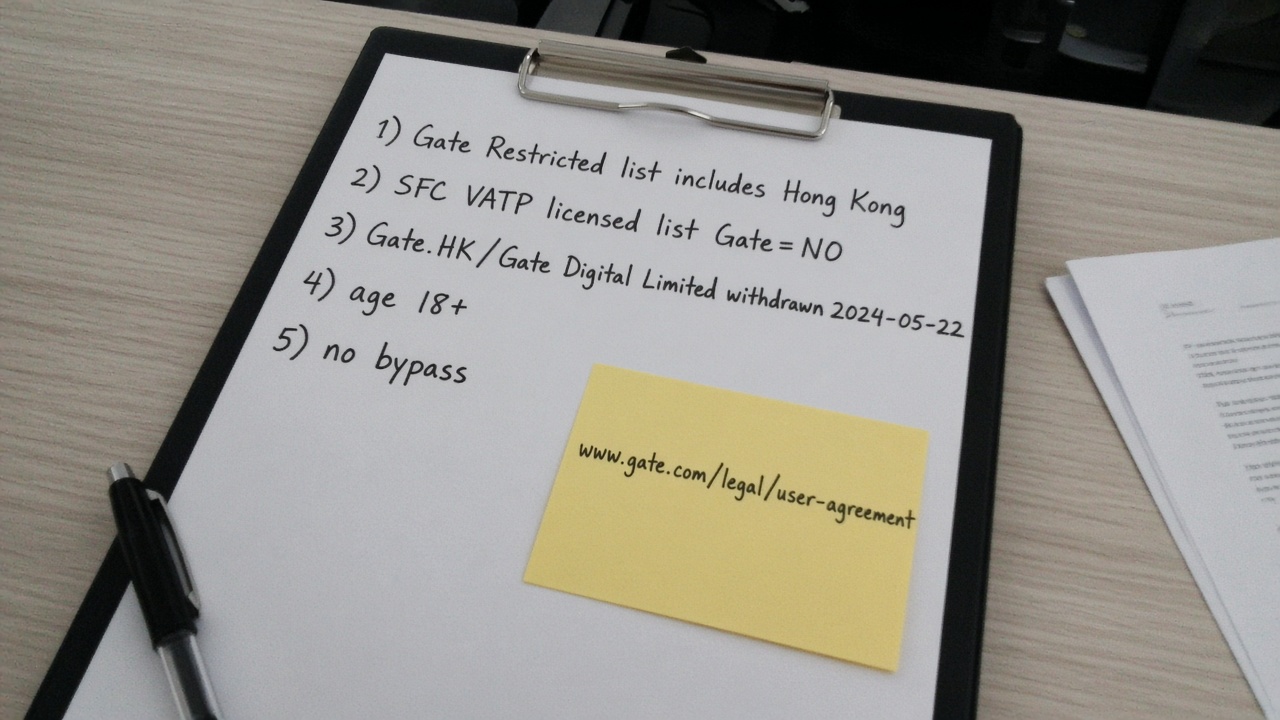 1) Gate Restricted list includes Hong Kong
2) SFC VATP licensed list Gate = NO
3) Gate.HK/Gate Digital Limited withdrawn 2024-05-22
4) age 18+
5) no bypass
www.gate.com/legal/user-agreement